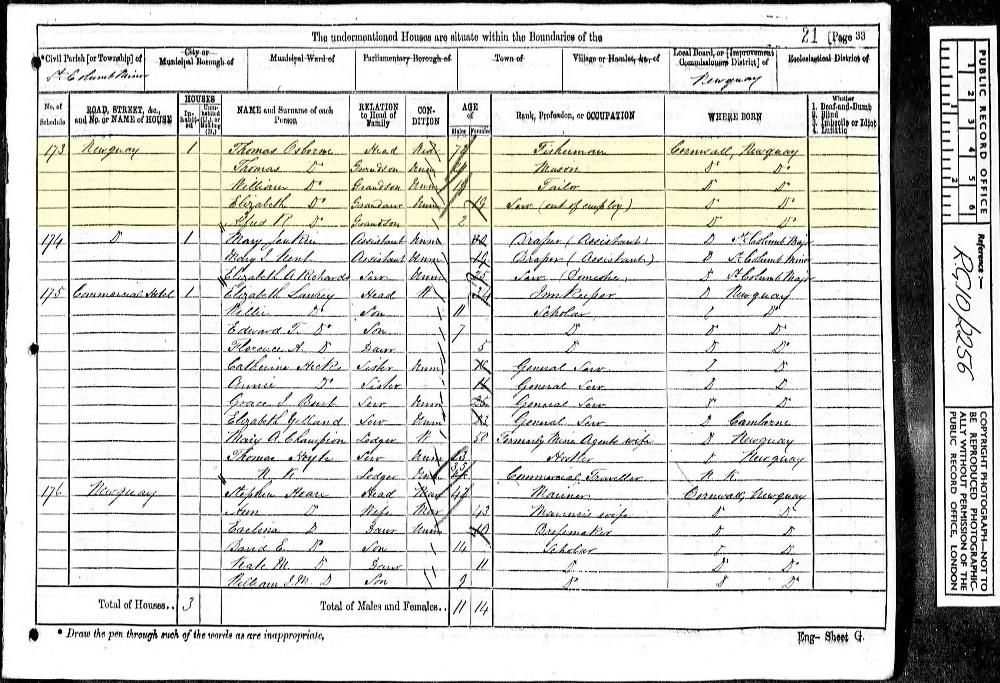 The undermentioned Houses are situate within the Boundaries of the
21
Page 33
*Civil Parish [or Township] of
City or Municipal Borough of
Municipal Ward of
Parliamentary Borough of
Town of
Village or Hamlet, &c., of
Local Board, or [Improvement Commissioners District] of
Ecclesiastical District of
St Columb Minor
Newquay
No. of Schedule
ROAD, STREET, &c., and No. or NAME of HOUSE
HOUSES
Inhabited
Uninhabited (U.) or Building (B.)
NAME and Surname of each Person
RELATION to Head of Family
CONDITION
AGE of
Males
Females
Rank, Profession, or OCCUPATION
WHERE BORN
Whether
1. Deaf-and-Dumb
2. Blind
3. Imbecile or Idiot
4. Lunatic
173 Newquay 1 Thomas Osborne Head Fisherman Cornwall, Newquay
Thomas Do Grandson Unm Mason Do Do
William Do Grandson Unm 19 Tailor Do Do
Elizabeth Do Unm 19 Serv (out of employ) Do Do
R Do Grandson 2 Do Do
174 D 1 Mary Assistant Unm Draper (Assistant) D St Columb Major
Mary J. Kent Assistant Unm Draper (Assistant) D St Columb Minor
Elizabeth A Richards Serv Unm 25 Serv St Columb Major
175 Commercial Hotel 1 Elizabeth Head W Innkeeper D Newquay
Willie Do Son 11 Scholar Do
Edward T. Do Son 7 D Do Do
Florence A. D Daur 5 D D Do
Catherine Hicks Sister Unm General Serv Do
Annie Do Sister 16 General Serv D D
Grace J Serv Unm 25 General Serv D
Elizabeth Serv Unm 23 General Serv D Camborne
Mary A. Champion Lodger W 50 Formerly Mine Agents wife D Newquay
Thomas Hoyle Serv Unm 23 Hostler Newquay
N. K. Lodger Commercial Traveller N. K.
176 Newquay Stephen Head Mar 47 Mariner Cornwall, Newquay
Ann D Wife Mar 43 Mariners wife Do Do
D Daur Unm 19 Dressmaker D D
David E. Do Son 14 Scholar D
M. D Daur 11 D Do D
William J. M. D Son 9 Do D Do
Total of Houses.. 3
Total of Males and Females.. 11 14
* Draw the pen through such of the words as are inappropriate,
Eng- Sheet G.
PUBLIC RECORD OFFICE
1 2 3 4 5 6
1 2
Reference:-
RG10/2256
COPYRIGHT PHOTOGRAPH—NOT TO BE REPRODUCED PHOTOGRAPHICALLY WITHOUT PERMISSION OF THE PUBLIC RECORD OFFICE, LONDON